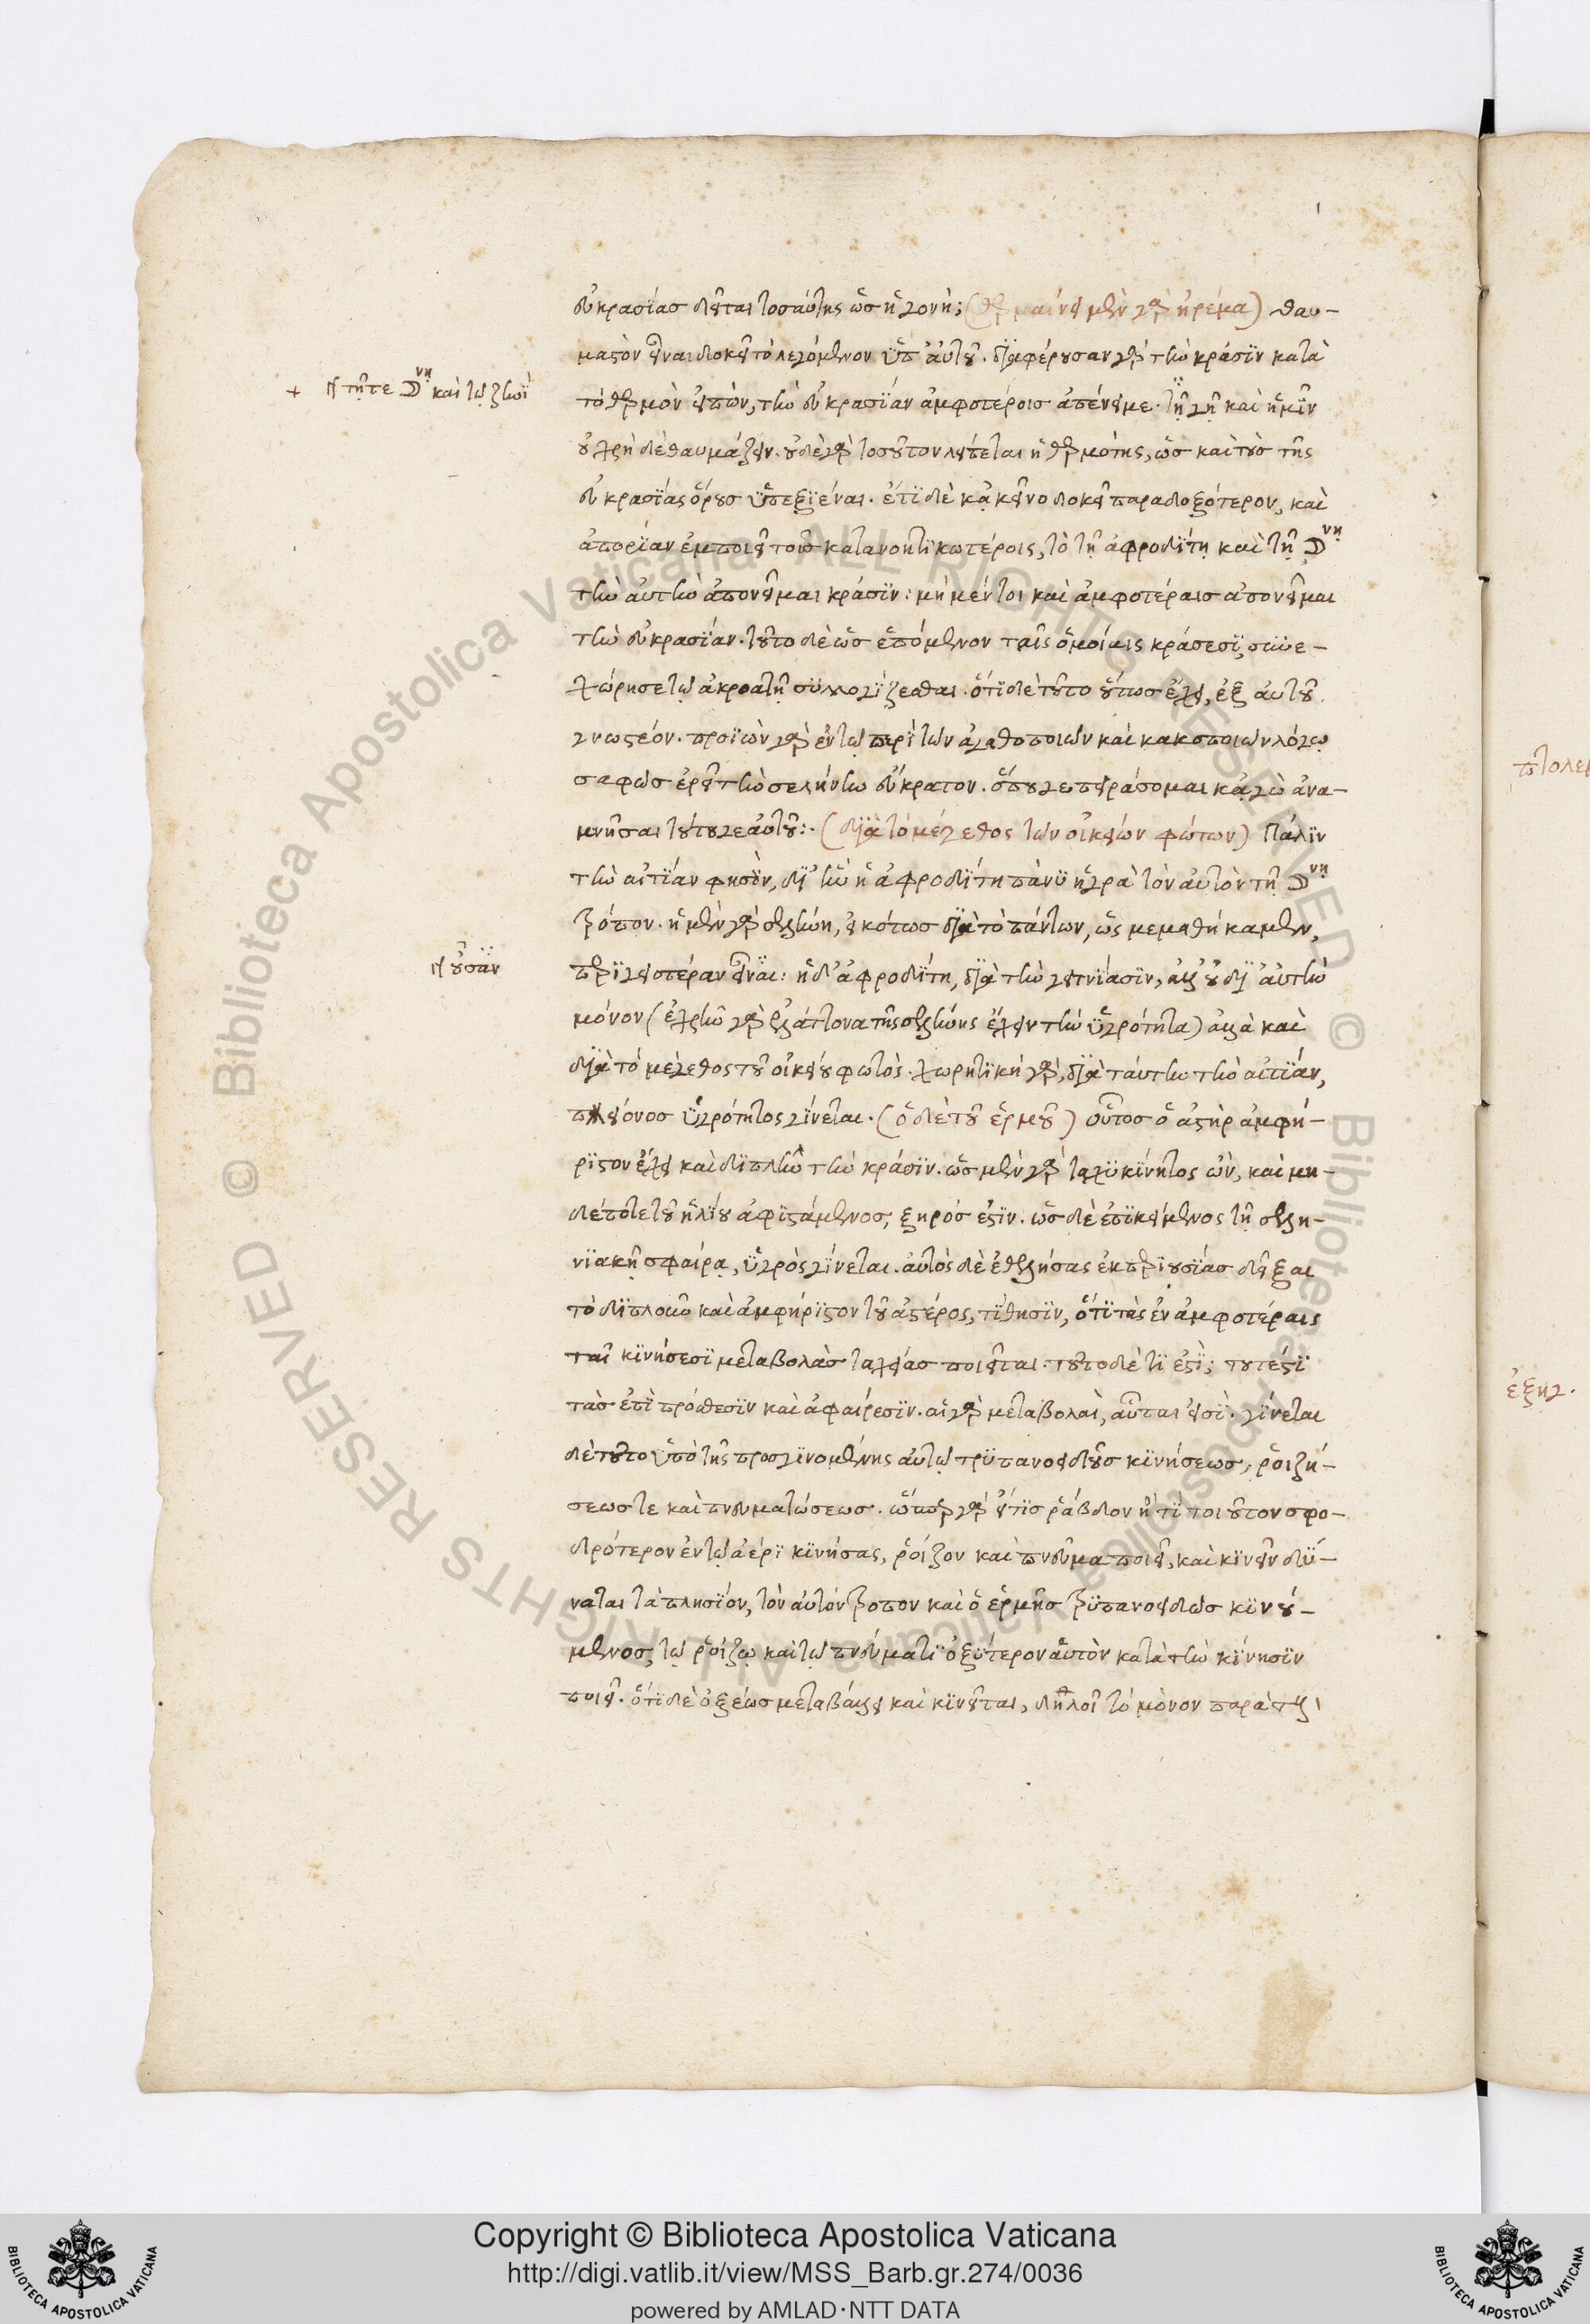 εὐκρασίας δεῖται τοσαύτης ὡς ἡ γονή; (θερμαίνει μὲν γὰρ ἠρέμα) θαυ-
μαστὸν εἶναι δοκεῖ τὸ λεγόμενον ὑπ' αὐτοῦ. διαφέρουσαν γὰρ τὴν κράσιν κατὰ
+ ἢ τῇ τε ☽νῃ καὶ τῷ
τὸ θερμὸν εἰπὼν, τὴν εὐκρασίαν ἀμφοτέροις ἀπένειμε. καὶ ἡμῖν
οὐ χρὴ δὲ θαυμάζειν. οὐδὲ γὰρ τοσοῦτον λείπεται ἡ θερμότης, ὡς καὶ τοὺς τῆς
εὐκρασίας ὅρους ὑπεξιέναι. ἔτι δὲ κἀκεῖνο δοκεῖ παραδοξότερον, καὶ
ἀπορίαν ἐμποιεῖ τοῖς κατανοητικωτέροις, τὸ τῇ ἀφροδίτῃ καὶ τῇ ☽νῃ
τὴν αὐτὴν ἀπονεῖμαι κράσιν: μὴ μέντοι καὶ ἀμφοτέραις ἀπονεῖμαι
τὴν εὐκρασίαν. τοῦτο δὲ ὡς ἑπόμενον ταῖς ὁμοίαις κράσεσι, συνε-
χώρησε τῷ ἀκροατῇ συλλογίζεσθαι. ὅτι δὲ τοῦτο οὕτως ἔχει, ἐξ αὐτοῦ
γνωστέον. προϊὼν γὰρ ἐν τῷ περὶ τῶν ἀγαθοποιῶν καὶ κακοποιῶν λόγῳ
σαφῶς ἐρεῖ τὴν σελήνην εὔκρατον. ὅπου γε πειράσομαι κἀγὼ ἀνα-
μνῆσαι τούτου γε αὐτοῦ:. (διὰ τὸ μέγεθος τῶν οἰκείων φώτων) Πάλιν
τὴν αἰτίαν φησὶν, δι' ἣν ἡ ἀφροδίτη πάνυ ὑγρὰ τὸν αὐτὸν τῇ ☽νῃ
τρόπον. ἡ μὲν γὰρ σελήνη, εἰκότως διὰ τὸ πάντων, ὡς μεμαθήκαμεν,
ἢ οὖσαν
περιγειοτέραν εἶναι: ἡ δ' ἀφροδίτη, διὰ τὴν γειτνίασιν, ἀλλ' οὐ δι' αὐτὴν
μόνον (ἐχρῆν γὰρ ἐλάττονα τῆς σελήνης ἔχειν τὴν ὑγρότητα) ἀλλὰ καὶ
διὰ τὸ μέγεθος τοῦ οἰκείου φωτός. χωρητικὴ γὰρ, διὰ ταύτην τὴν αἰτίαν,
πλείονος ὑγρότητος γίνεται. (ὁ δὲ τοῦ ἑρμοῦ) οὗτος ὁ ἀστὴρ ἀμφή-
ριστον ἔχει καὶ διπλῆν τὴν κράσιν. ὡς μὲν γὰρ ταχυκίνητος ὢν, καὶ μη-
δέποτε τοῦ ἡλίου ἀφιστάμενος, ξηρός ἐστιν. ὡς δὲ ἐπικείμενος τῇ σελη-
νιακῇ σφαίρᾳ, ὑγρὸς γίνεται. αὐτὸς δὲ ἐθελήσας ἐκ περιουσίας δεῖξαι
τὸ διπλοῦν καὶ ἀμφήριστον τοῦ ἀστέρος, τίθησιν, ὅτι τὰς ἐν ἀμφοτέραις
ταῖ κινήσεσι μεταβολὰς ταχείας ποιεῖται. τοῦτο δὲ τί ἐστι; τουτέστι
τὰς ἐπὶ πρόσθεσιν καὶ ἀφαίρεσιν. αἱ γὰρ μεταβολαὶ, αὗται εἰσί. γίνεται
δὲ τοῦτο ὑπὸ τῆς προσγινομένης αὐτῷ τρυπανοειδοῦς κινήσεως, ῥοιζή-
σεως τε καὶ πνευματώσεως. ὥσπερ γὰρ εἴ τις ῥάβδον ἤ τι τοιοῦτον σφο-
δρότερον ἐν τῷ ἀέρι κινήσας, ῥοίζον καὶ πνεῦμα ποιεῖ, καὶ κινεῖν δύ-
ναται τὰ πλησίον, τὸν αὐτὸν τρόπον καὶ ὁ ἑρμῆς τρυπανοειδῶς κινού-
μενος, τῷ ῥοίζῳ καὶ τῷ πνεύματι ὀξύτερον ἑαυτὸν κατὰ τὴν κίνησιν
ποιεῖ. ὅτι δὲ ὀξέως μεταβάλλει καὶ κινεῖται, δηλοῖ τὸ μόνον παρὰ
ἐξηγ.
Copyright © Biblioteca Apostolica Vaticana
http://digi.vatlib.it/view/MSS_Barb.gr.274/0036
powered by AMLAD·NTT DATA